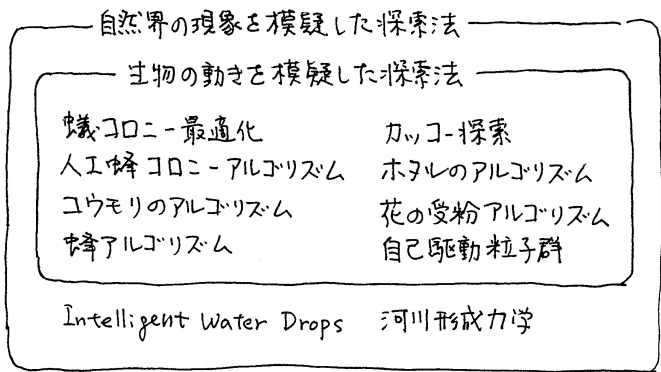 自然界の現象を模疑した探索法
生物の動きを模疑した探索法
蟻コロニー最適化
人工蜂コロニーアルゴリズム
コウモリのアルゴリズム
蜂アルゴリズム
カッコー探索
ホタルのアルゴリズム
花の受粉アルゴリズム
自己駆動粒子群
Intelligent Water Drops 河川形成力学